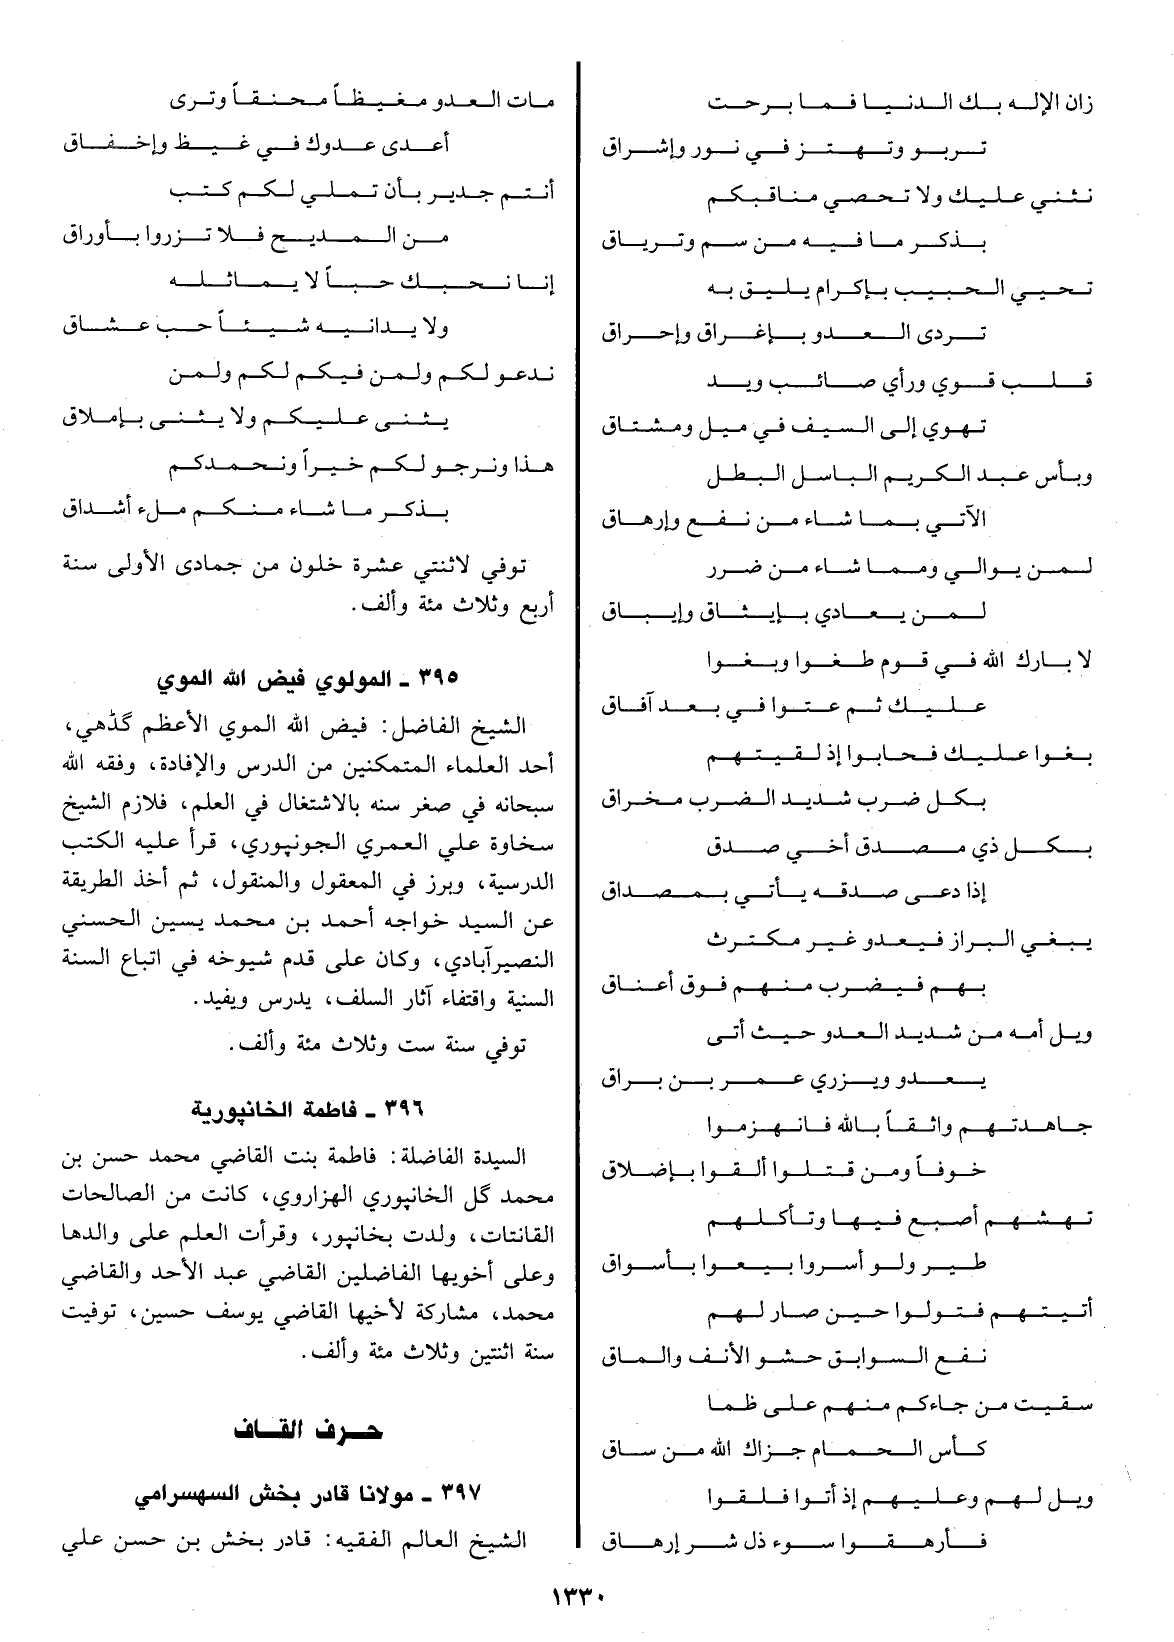 زان الإله بك الدنيا فما برحت
تربو وتهتز في نور وإشراق
نثني عليك ولا تحصي مناقبكم
بذكر ما فيه من سم وترياق
تحيي الحبيب بإكرام يليق به
تردى العدو بإغراق وإحراق
قلب قوي ورأي صائب ويد
تهوي إلى السيف في ميل ومشتاق
وبأس عبد الكريم الباسل البطل
الآتي بما شاء من نفع وإرهاق
لمن يوالي وما شاء من ضرر
لمن يعادي بإيثاق وإيباق
لا بارك الله في قوم طغوا وبغوا
عليك ثم عتوا في بعد آفاق
بغوا عليك فحابوا إذ لقيتهم
بكل ضرب شديد الضرب مخراق
بكل ذي مصدق أخي صدق
إذا دعى صدقه يأتي بمصداق
يبغي البراز فيعدو غير مكترث
بهم فيضرب منهم فوق أعناق
ويل أمه من شديد العدو حيث أتى
يعدو ويزري عمر بن براق
جاهدتهم واثقاً بالله فانهزموا
خوفاً ومن قتلوا ألقوا بإضلاق
تهشهم أضبع فيها وتأكلهم
طير ولو أسروا بيعوا بأسواق
أتيتهم فتولوا حين صار لهم
نفع السوابق حشو الأنف والماق
سقيت من جاءكم منهم على ظما
كأس الحمام جزاك الله من ساق
ويل لهم وعليهم إذ أتوا فلقوا
فأرهقوا سوء ذل شر إرهاق
مات العدو مغيظاً محنقاً وترى
أعدى عدوك في غيظ وإخفاق
أنتم جدير بأن تملي لكم كتب
من المديح فلا تزروا بأوراق
إنا نحبك حباً لا يماثله
ولا يدانيه شيئاً حب عشاق
ندعو لكم ولمن فيكم لكم ولمن
يثنى عليكم ولا يثنى بإملاق
هذا ونرجو لكم خيراً ونحمدكم
بذكر ما شاء منكم ملء أشداق
توفي لاثنتي عشرة خلون من جمادى الأولى سنة
أربع وثلاث مئة وألف.
٣٩٥ ـ المولوي فيض الله الموي
الشيخ الفاضل: فيض الله الموي الأعظم گذهي،
أحد العلماء المتمكنين من الدرس والإفادة، وفقه الله
سبحانه في صغر سنه بالاشتغال في العلم، فلازم الشيخ
سخاوة علي العمري الجونپوري، قرأ عليه الكتب
الدرسية، وبرز في المعقول والمنقول، ثم أخذ الطريقة
عن السيد خواجه أحمد بن محمد يسين الحسني
النصيرآبادي، وكان على قدم شيوخه في اتباع السنة
السنية واقتفاء آثار السلف، يدرس ويفيد.
توفي سنة ست وثلاث مئة وألف.
٣٩٦ ـ فاطمة الخانپورية
السيدة الفاضلة: فاطمة بنت القاضي محمد حسن بن
محمد گل الخانپوري الهزاروي، كانت من الصالحات
القانتات، ولدت بخانپور، وقرأت العلم على والدها
وعلى أخويها الفاضلين القاضي عبد الأحد والقاضي
محمد، مشاركة لأخيها القاضي يوسف حسين، توفيت
سنة اثنتين وثلاث مئة وألف.
حرف القاف
٣٩٧ ـ مولانا قادر بخش السهسرامي
الشيخ العالم الفقيه: قادر بخش بن حسن علي
١٣٣٠